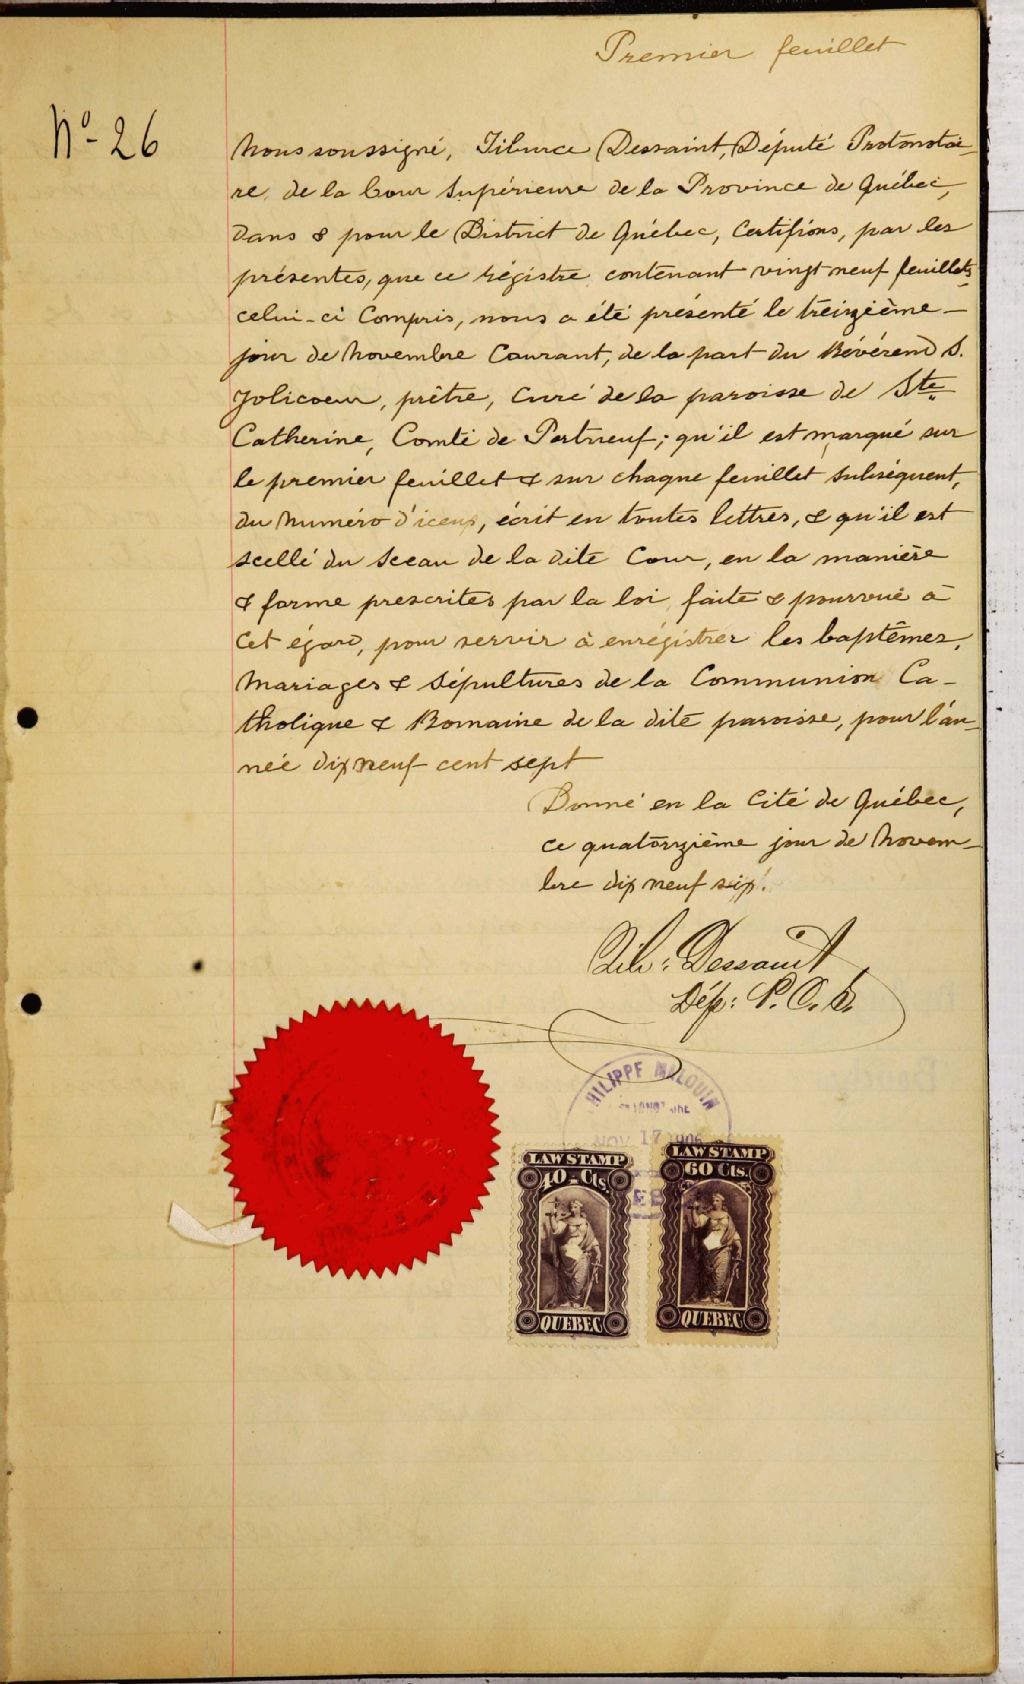 Premier feuillet
No- 26
Nous soussigné, Tiburce Dessaint, Député Protonotai-
re, de la Cour Supérieure de la Province de Québec,
dans & pour le District de Québec, Certifions, par les
présentes, que ce régistre contenant vingt neuf feuillets
celui-ci Compris, nous a été présenté le treizième-
jour de Novembre Courant, de la part du Révérend S.
Jolicoeur, prêtre, Curé de la paroisse de Ste
Catherine, Comté de Portneuf; qu'il est marqué sur
le premier feuillet & sur chaque feuillet subséquent,
du Numéro d'iceux, écrit en toutes lettres, & qu'il est
scellé du Sceau de la dite Cour, en la manière
& forme prescrites par la loi faite & pourvue à
cet égard, pour servir à enrégistrer les baptêmes,
Mariages & Sépultures de la Communion Ca-
tholique & Romaine de la dite paroisse, pour l'an-
née dix neuf cent sept
Donné en la Cité de Québec,
ce quatorzième jour de Novem-
bre dix neuf six.
Tib: Dessaint
Dép: P.C.S.
PHILIPPE MALOUIN
NOV 17 1906
LAW STAMP
40 Cts.
QUEBEC
LAW STAMP
60 Cts.
QUEBEC